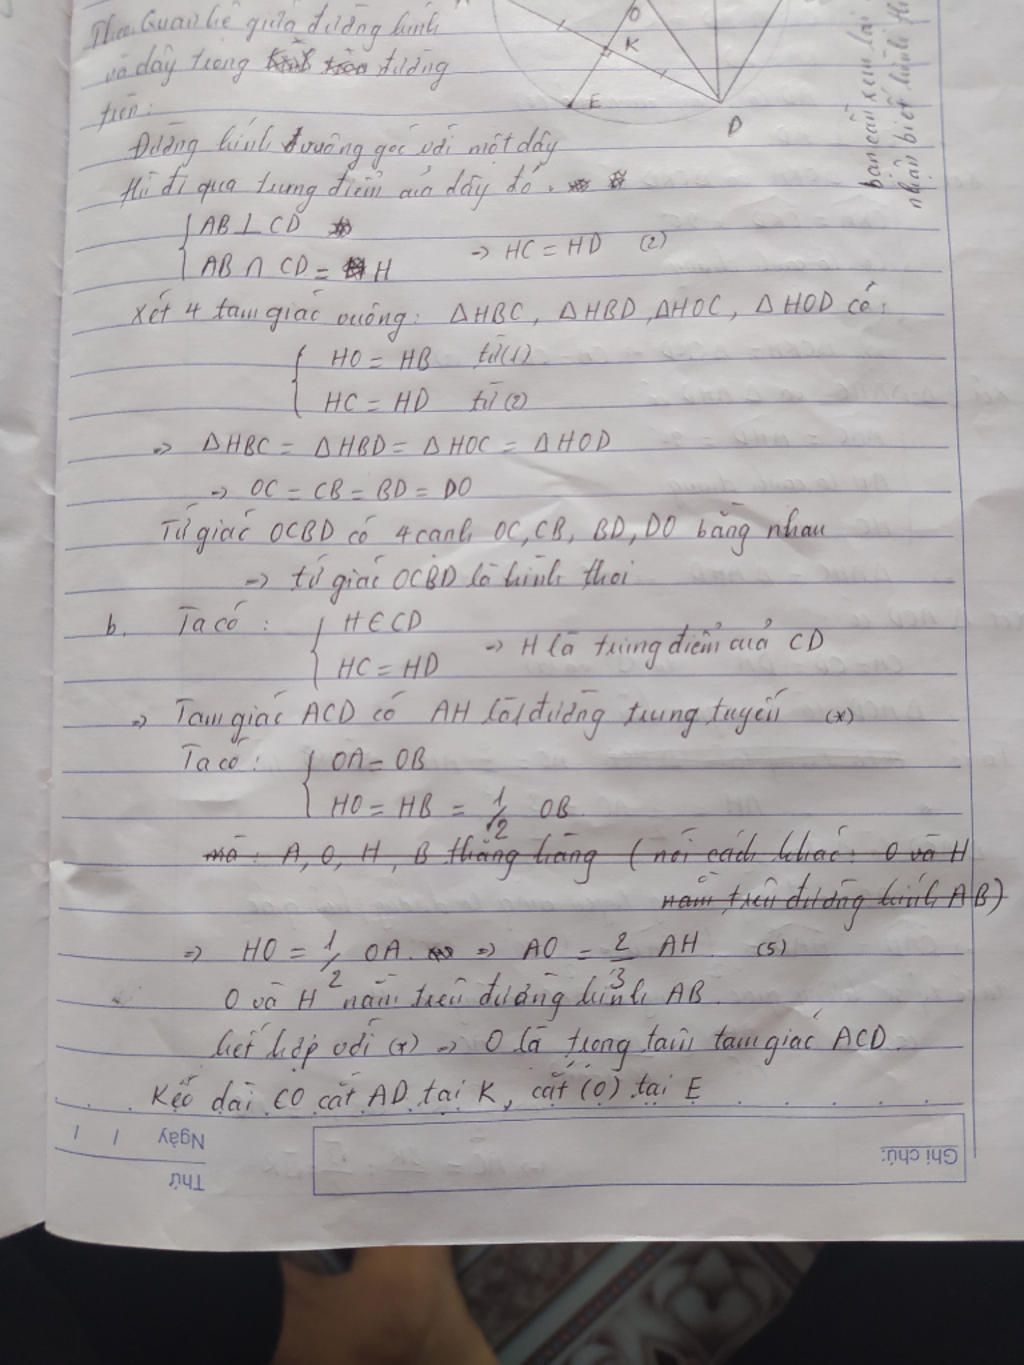 Theo Quan hệ giữa đường kính
và dây trong đường
tròn:
O
K
E
D
bạn cần xem lại
nhận biết hình th
Đường kính vuông góc với một dây
thì đi qua trung điểm của dây đó.
AB ⊥ CD
AB ∩ CD = H
→ HC = HD (2)
Xét 4 tam giác vuông: ΔHBC, ΔHBD, ΔHOC, ΔHOD có:
HO = HB từ (1)
HC = HD từ (2)
=> ΔHBC = ΔHBD = ΔHOC = ΔHOD
=> OC = CB = BD = DO
Tứ giác OCBD có 4 cạnh OC, CB, BD, DO bằng nhau
=> tứ giác OCBD là hình thoi
b. Ta có: H ∈ CD
HC = HD
=> H là trung điểm của CD
=> Tam giác ACD có AH là đường trung tuyến (*)
Ta có: OA = OB
HO = HB = 1/2 OB
mà: A, O, H, B thẳng hàng (nói cách khác: O và H
nằm trên đường kính AB)
=> HO = 1/2 OA => AO = 2/3 AH. (5)
O và H nằm trên đường kính AB.
kết hợp với (*) => O là trọng tâm tam giác ACD.
Kéo dài CO cắt AD tại K, cắt (O) tại E
Ngày / /
Thứ
Ghi chú: